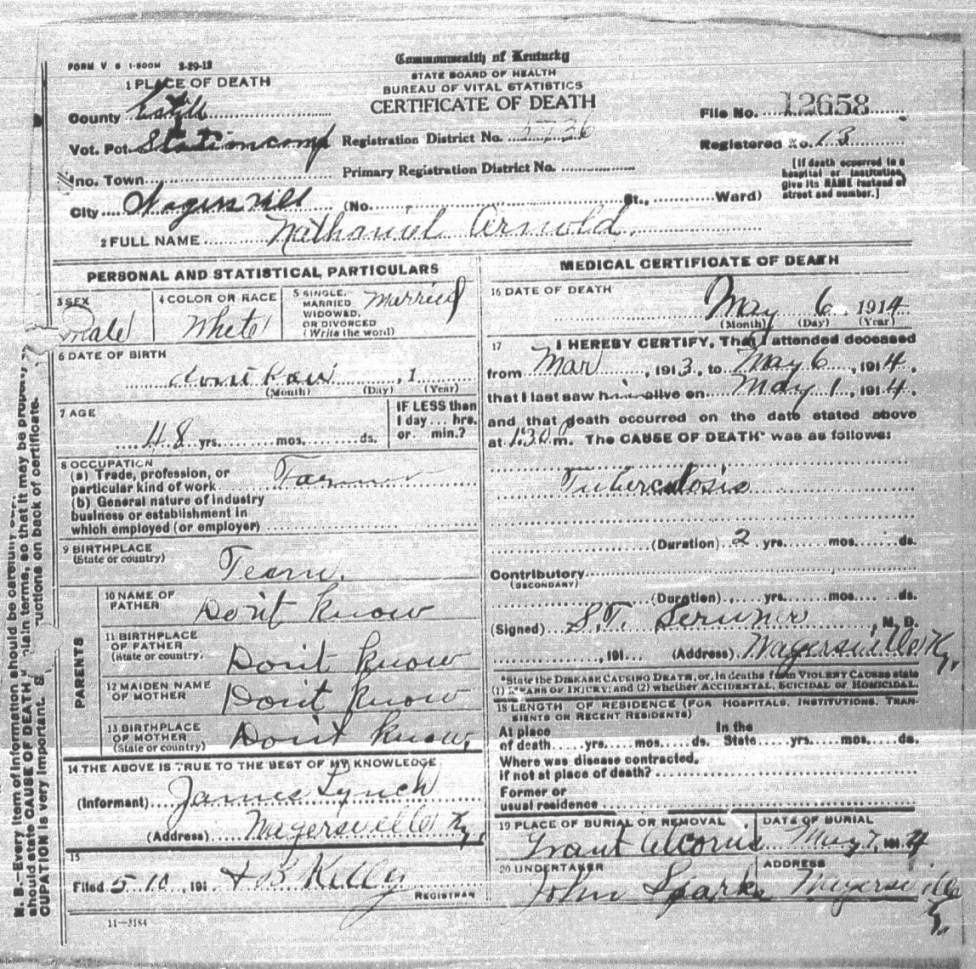 FORM V. S 1-500M 2-29-12
Commonwealth of Kentucky
STATE BOARD OF HEALTH
BUREAU OF VITAL STATISTICS
CERTIFICATE OF DEATH
1 PLACE OF DEATH
County Estill
Vot. Pct. Stationcamp
Inc. Town
City Wagersvill (No. St., Ward)
Registration District No. 5736
Primary Registration District No.
File No. 12658
Registered No. 13
[If death occurred in a hospital or institution, give its NAME instead of street and number.]
2 FULL NAME Nathaniel Arnold.
PERSONAL AND STATISTICAL PARTICULARS
3 SEX
Male
4 COLOR OR RACE
White
5 SINGLE, MARRIED WIDOWED, OR DIVORCED (Write the word)
Married
6 DATE OF BIRTH
dont know, 1
(Month) (Day) (Year)
7 AGE
48 yrs. mos. ds.
IF LESS than
1 day... hrs.
or... min.?
8 OCCUPATION
(a) Trade, profession, or
particular kind of work Farmer
(b) General nature of industry
business or establishment in
which employed (or employer)
9 BIRTHPLACE
(State or country)
Tenn.
PARENTS
10 NAME OF
FATHER
Don't know
11 BIRTHPLACE
OF FATHER
(State or country.
Don't know
12 MAIDEN NAME
OF MOTHER
Don't know
13 BIRTHPLACE
OF MOTHER
(State or country)
Don't know,
14 THE ABOVE IS TRUE TO THE BEST OF MY KNOWLEDGE
(Informant) James Lynch
(Address) Wagersville Ky,
15
Filed 5-10, 191 Kelly
REGISTRAR
11-3184
MEDICAL CERTIFICATE OF DEATH
16 DATE OF DEATH
May 6 1914
(Month) (Day) (Year)
17 I HEREBY CERTIFY, That I attended deceased
from Mar, 1913, to May 6, 1914,
that I last saw him alive on May 1, 1914,
and that death occurred on the date stated above
at 1:30 m. The CAUSE OF DEATH* was as follows:
Tuberculosis
(Duration) 2 yrs. mos. ds.
Contributory
(SECONDARY)
(Duration) yrs. mos. ds.
(Signed) S.T. M. D.
, 191 (Address) Wagersville Ky,
*State the DISEASE CAUSING DEATH, or, in deaths from VIOLENT CAUSES state
(1) MEANS OF INJURY; and (2) whether ACCIDENTAL, SUICIDAL or HOMICIDAL.
18 LENGTH OF RESIDENCE (FOR HOSPITALS, INSTITUTIONS, TRAN-
SIENTS OR RECENT RESIDENTS)
At place In the
of death yrs. mos. ds. State yrs. mos. ds.
Where was disease contracted,
if not at place of death?
Former or
usual residence
19 PLACE OF BURIAL OR REMOVAL
Grant Alcorns
DATE OF BURIAL
May 7, 1914
20 UNDERTAKER
John Sparks
ADDRESS
Wagersville Ky.
N. B.—Every item of information should be carefully
should state CAUSE OF DEATH plain terms, so that it may be properly
CUPATION is very important. uctions on back of certificate.